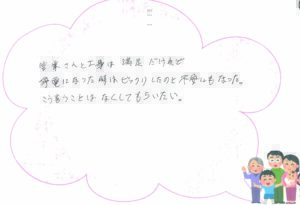 営業さんと工事は満足だけれど
停電になった時はビックリしたのと不安にもなった。
こう言うことはなくしてもらいたい。